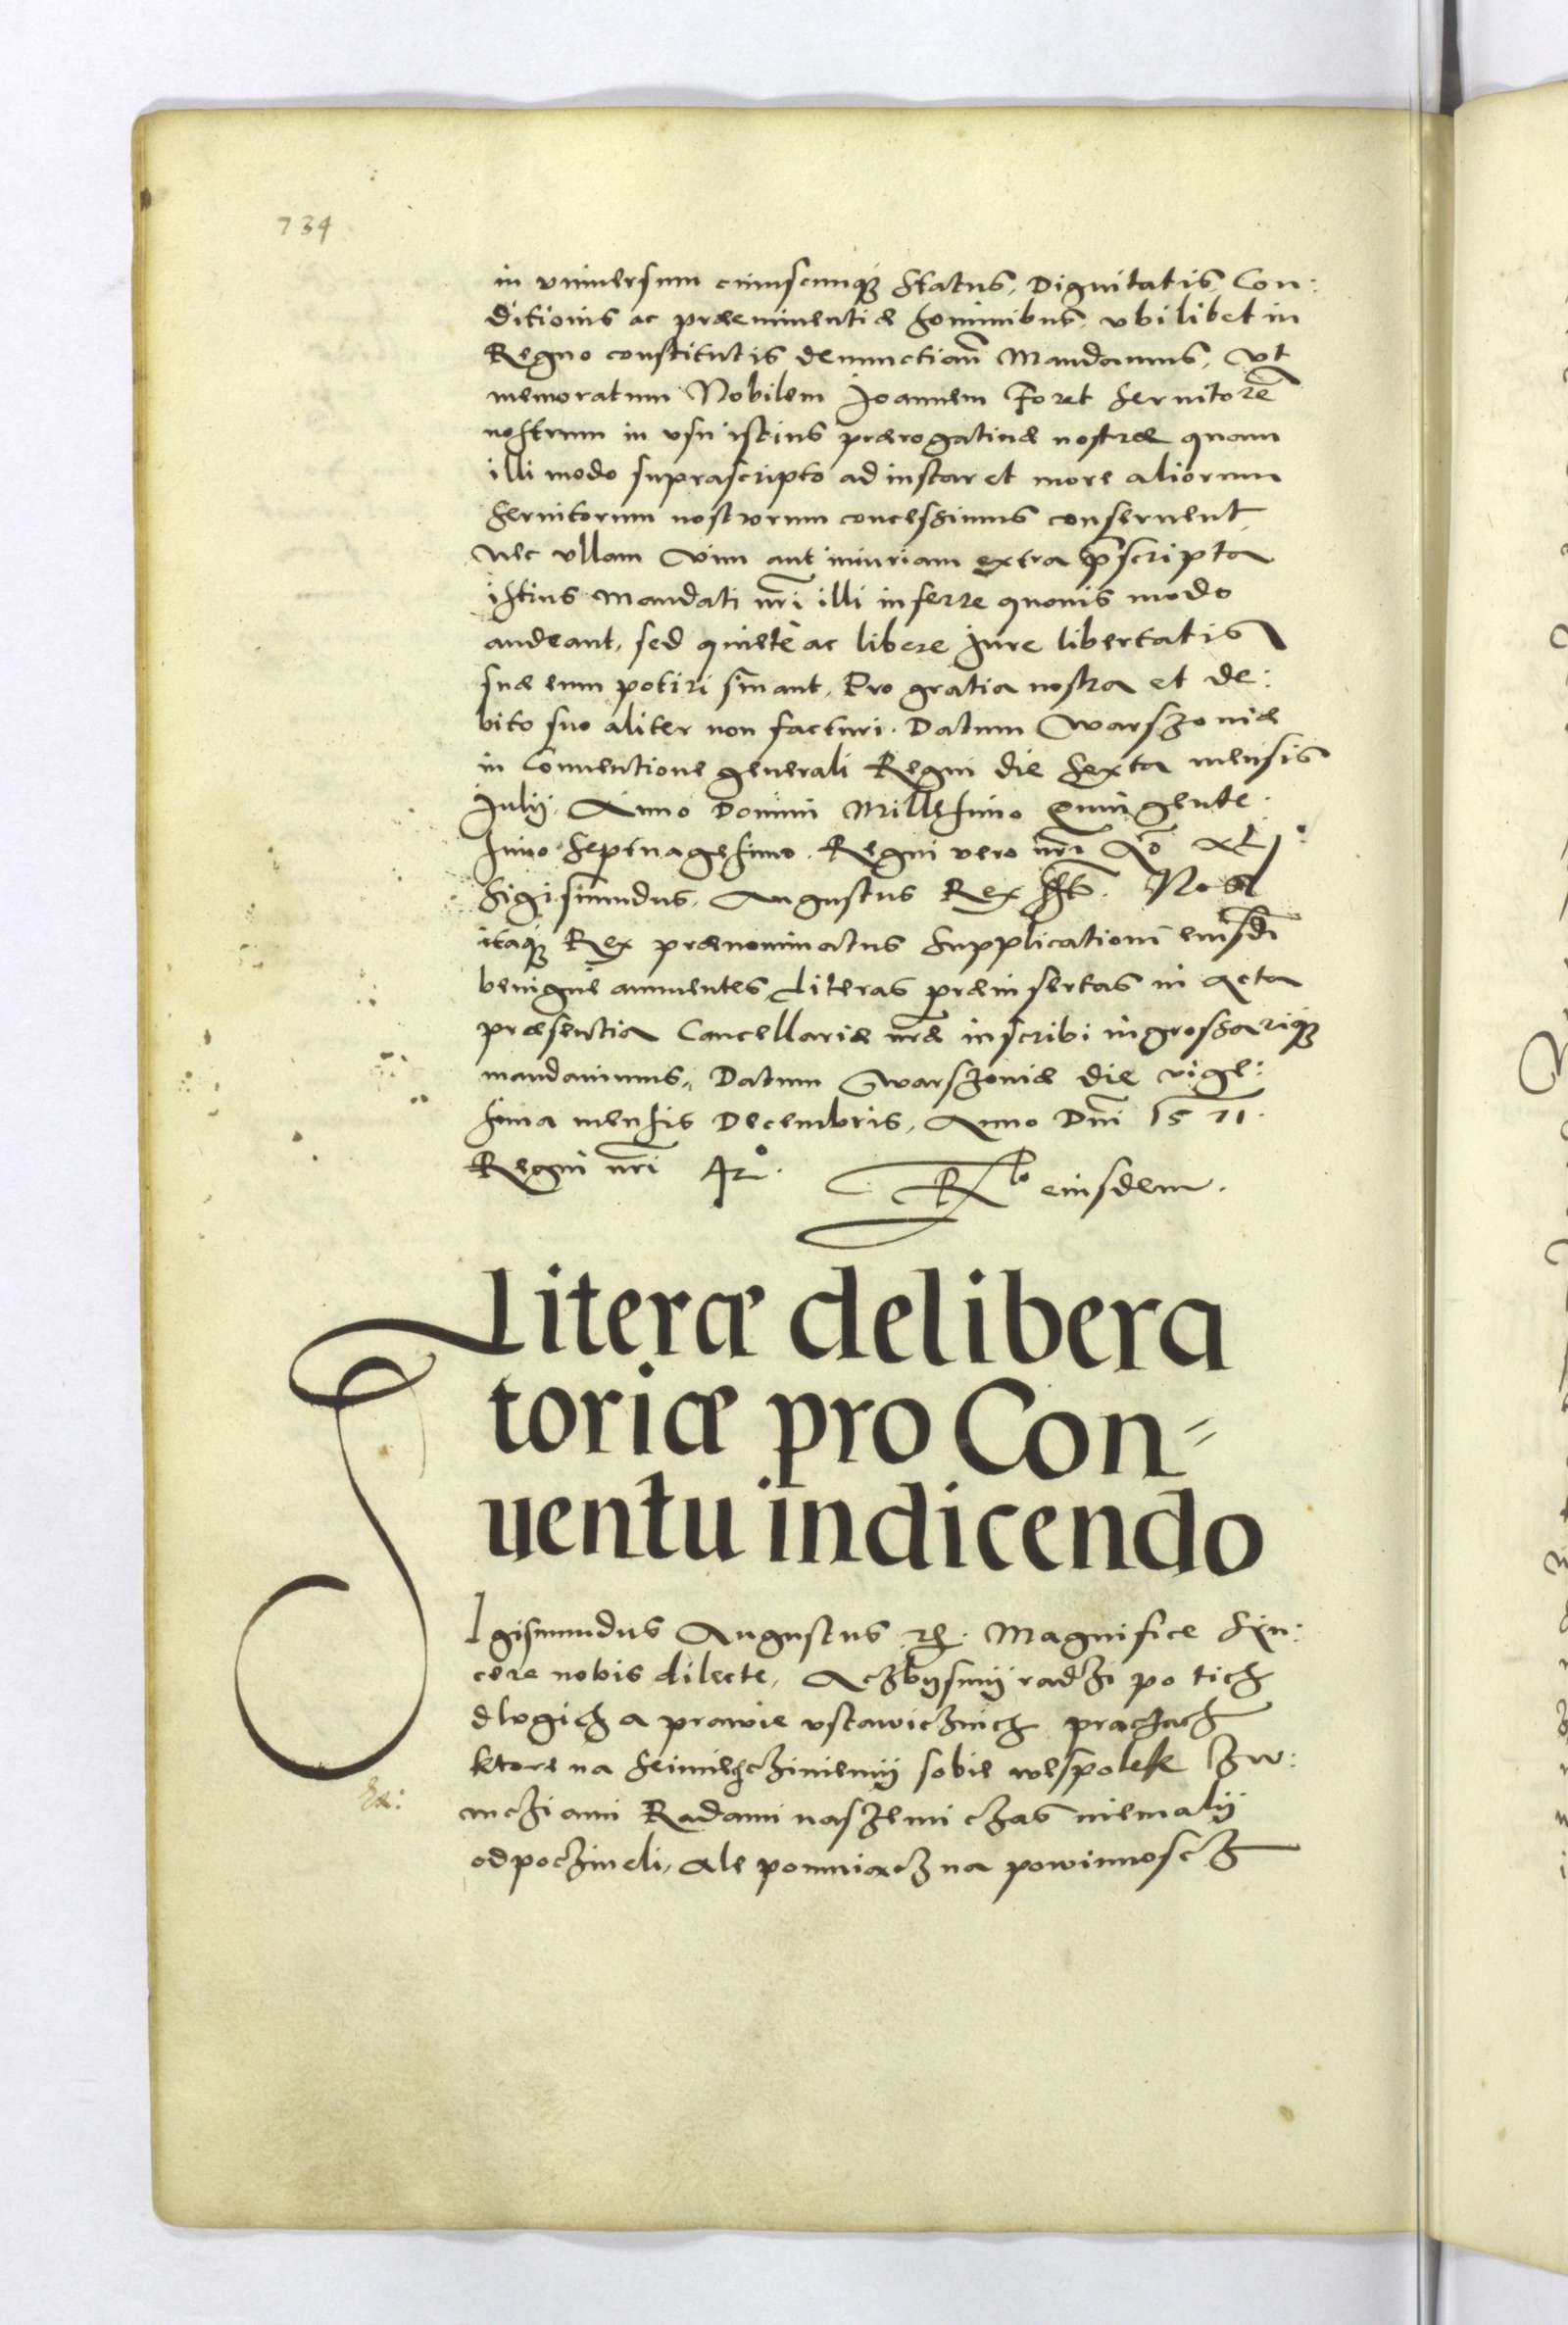 734
in vniuersum cuiuscunq₃ Status, Dignitatis, Con:
ditionis ac præeminentiæ hominibus, vbilibet in
Regno constitutis denunctian̄ Mandamus, Vt
memoratum Nobilem Joannem Foret Seruitorē
nostrum in vsu istius prærogatiuæ nostræ quam
illi modo suprascripto ad instar et more aliorum
Seruitorum nostrorum concessimus conseruent
nec vllam Vim aut iniuriam extra p̄scripta
istius Mandati nr̄i illi inferre quouis modo
audeant, sed quiete ac libere Jure libertatis
suæ eum potiri sinant, Pro gratia nostra et de:
bito suo aliter non facturi. Datum Warszouiæ
in Conuentione generali Regni die Sexta mensis
Julij. Anno Domini Millesimo Quingente:
simo Septuagesimo. Regni vero nr̄i
Sigismundus Augustus Rex sst. Nos
itaq₃ Rex prænominatus Supplicationi eiusdē
benigne annuentes, Literas præinsertas in Acta
præsentia Cancellariæ nr̄æ inscribi ingrossariq₃
mandauimus, Datum Warszouiæ die vige:
sima mensis Decembris, Anno Dn̄i 1571.
Regni nr̄i 42°. Rlo eiusdem.
Literæ delibera
toriæ pro Con=
uentu indicendo
SIgismundus Augustus etc. Magnifice Syn:
cere nobis dilecte, Aczbysmy radzi po tich
dlugich a prawie vstawicznich praczach
ktore na Seimiech cziniemy sobie wespolek Zw:
mcziami Radami naszemi czas niemaly
odpoczineli, Ale pomniacz na powinnoscz